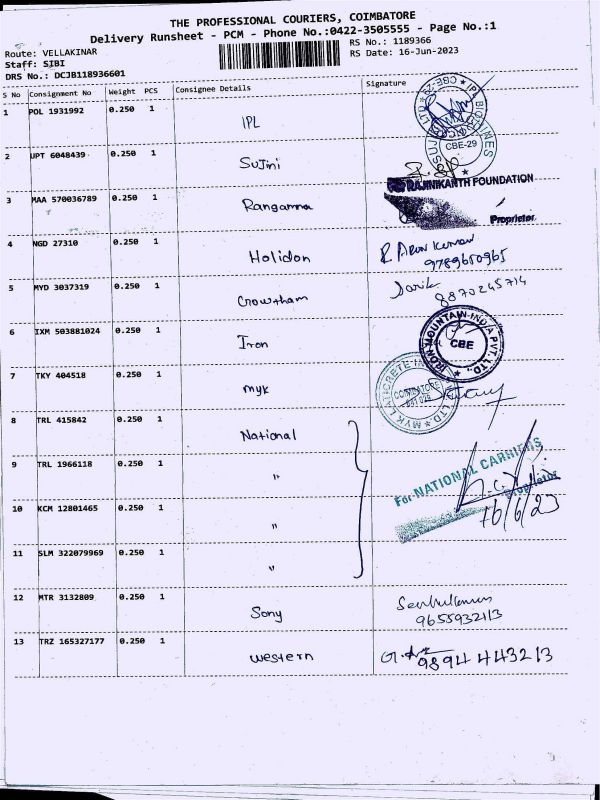 THE PROFESSIONAL COURIERS, COIMBATORE
Delivery Runsheet - PCM - Phone No.:0422-3505555 - Page No.:1
Route: VELLAKINAR
Staff: SIBI
DRS No.: DCJB118936601
RS No.: 1189366
RS Date: 16-Jun-2023
S No Consignment No Weight PCS Consignee Details Signature
1 POL 1931992 0.250 1 IPL
CBE-29
2 UPT 6048439 0.250 1 Sujini
RAJINIKANTH FOUNDATION
3 MAA 570036789 0.250 1 Ranganna
Proprietor
4 NGD 27310 0.250 1 Holidon R. Arun Kumar
9789650965
5 MYD 3037319 0.250 1 Crowtham
8870245714
6 IXM 503881024 0.250 1 Iron IRON MOUNTAIN INDIA PVT. LTD.,
CBE
7 TKY 404518 0.250 1 myk
COIMBATORE
8 TRL 415842 0.250 1 National
For NATIONAL CARRIERS
9 TRL 1966118 0.250 1 "
Proprietor
16/6/23
10 KCM 12801465 0.250 1 "
11 SLM 322079969 0.250 1 "
12 MTR 3132809 0.250 1 Sony
9655932113
13 TRZ 165327177 0.250 1 western
9894443213